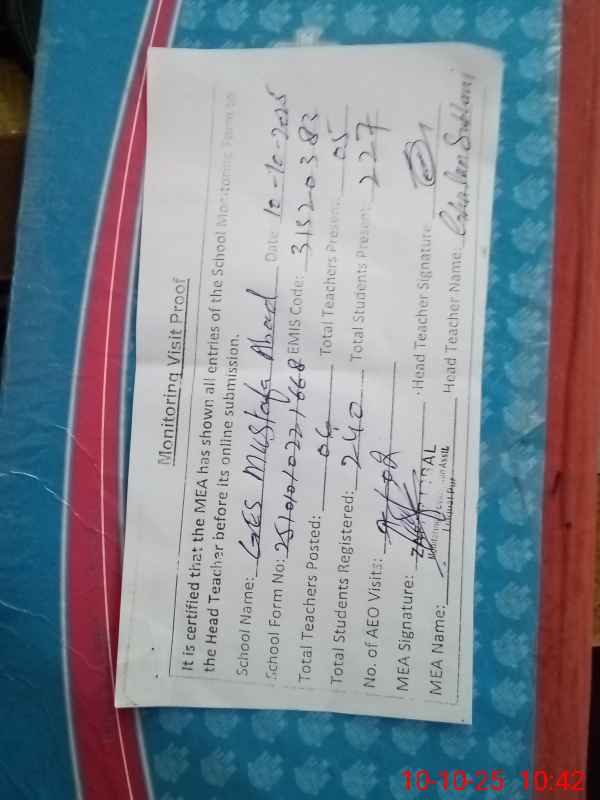 Monitoring Visit Proof
It is certified that the MEA has shown all entries of the School Monitoring Form to
the Head Teacher before its online submission.
School Name: GES Mustafa Abad Date 10-10-2025
School Form No: EMIS Code: 31520383
Total Teachers Posted: 06 Total Teachers Present: 05
Total Students Registered: 240 Total Students Present: 227
No. of AEO Visits:
MEA Signature: Head Teacher Signature:
MEA Name: Head Teacher Name:
10-10-25 10:42